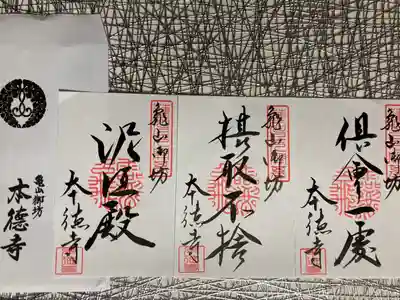 亀山御坊
倶會一處
本徳寺
亀山御坊
摂取不捨
本徳寺
亀山御坊
泥洹殿
本徳寺
亀山御坊
本徳寺